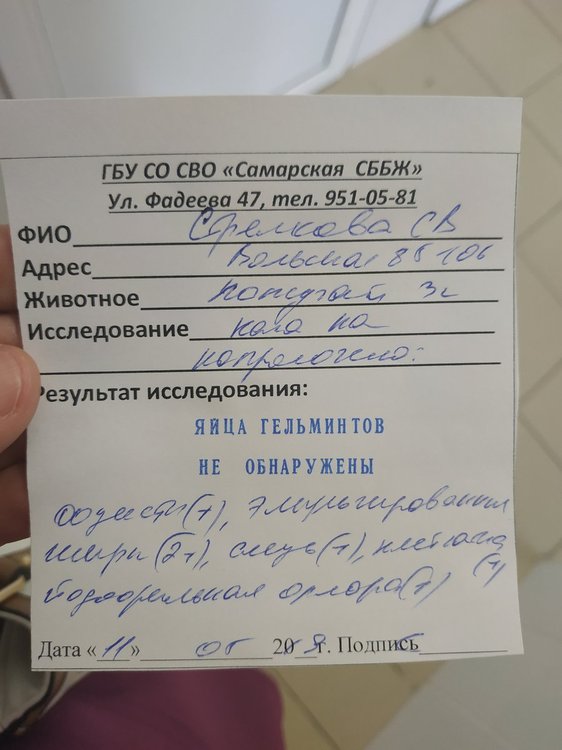 ГБУ СО СВО «Самарская СББЖ»
Ул. Фадеева 47, тел. 951-05-81
ФИО Стрелкова СВ
Адрес
Животное попугай 3г
Исследование кала на
копрологию:
Результат исследования:
ЯЙЦА ГЕЛЬМИНТОВ
НЕ ОБНАРУЖЕНЫ
ооцисты(+), эмульгированный
жиры(2+), слизь(+), клетчатка
йодофильная флора(+) (+)
Дата «11» 20 г. Подпись